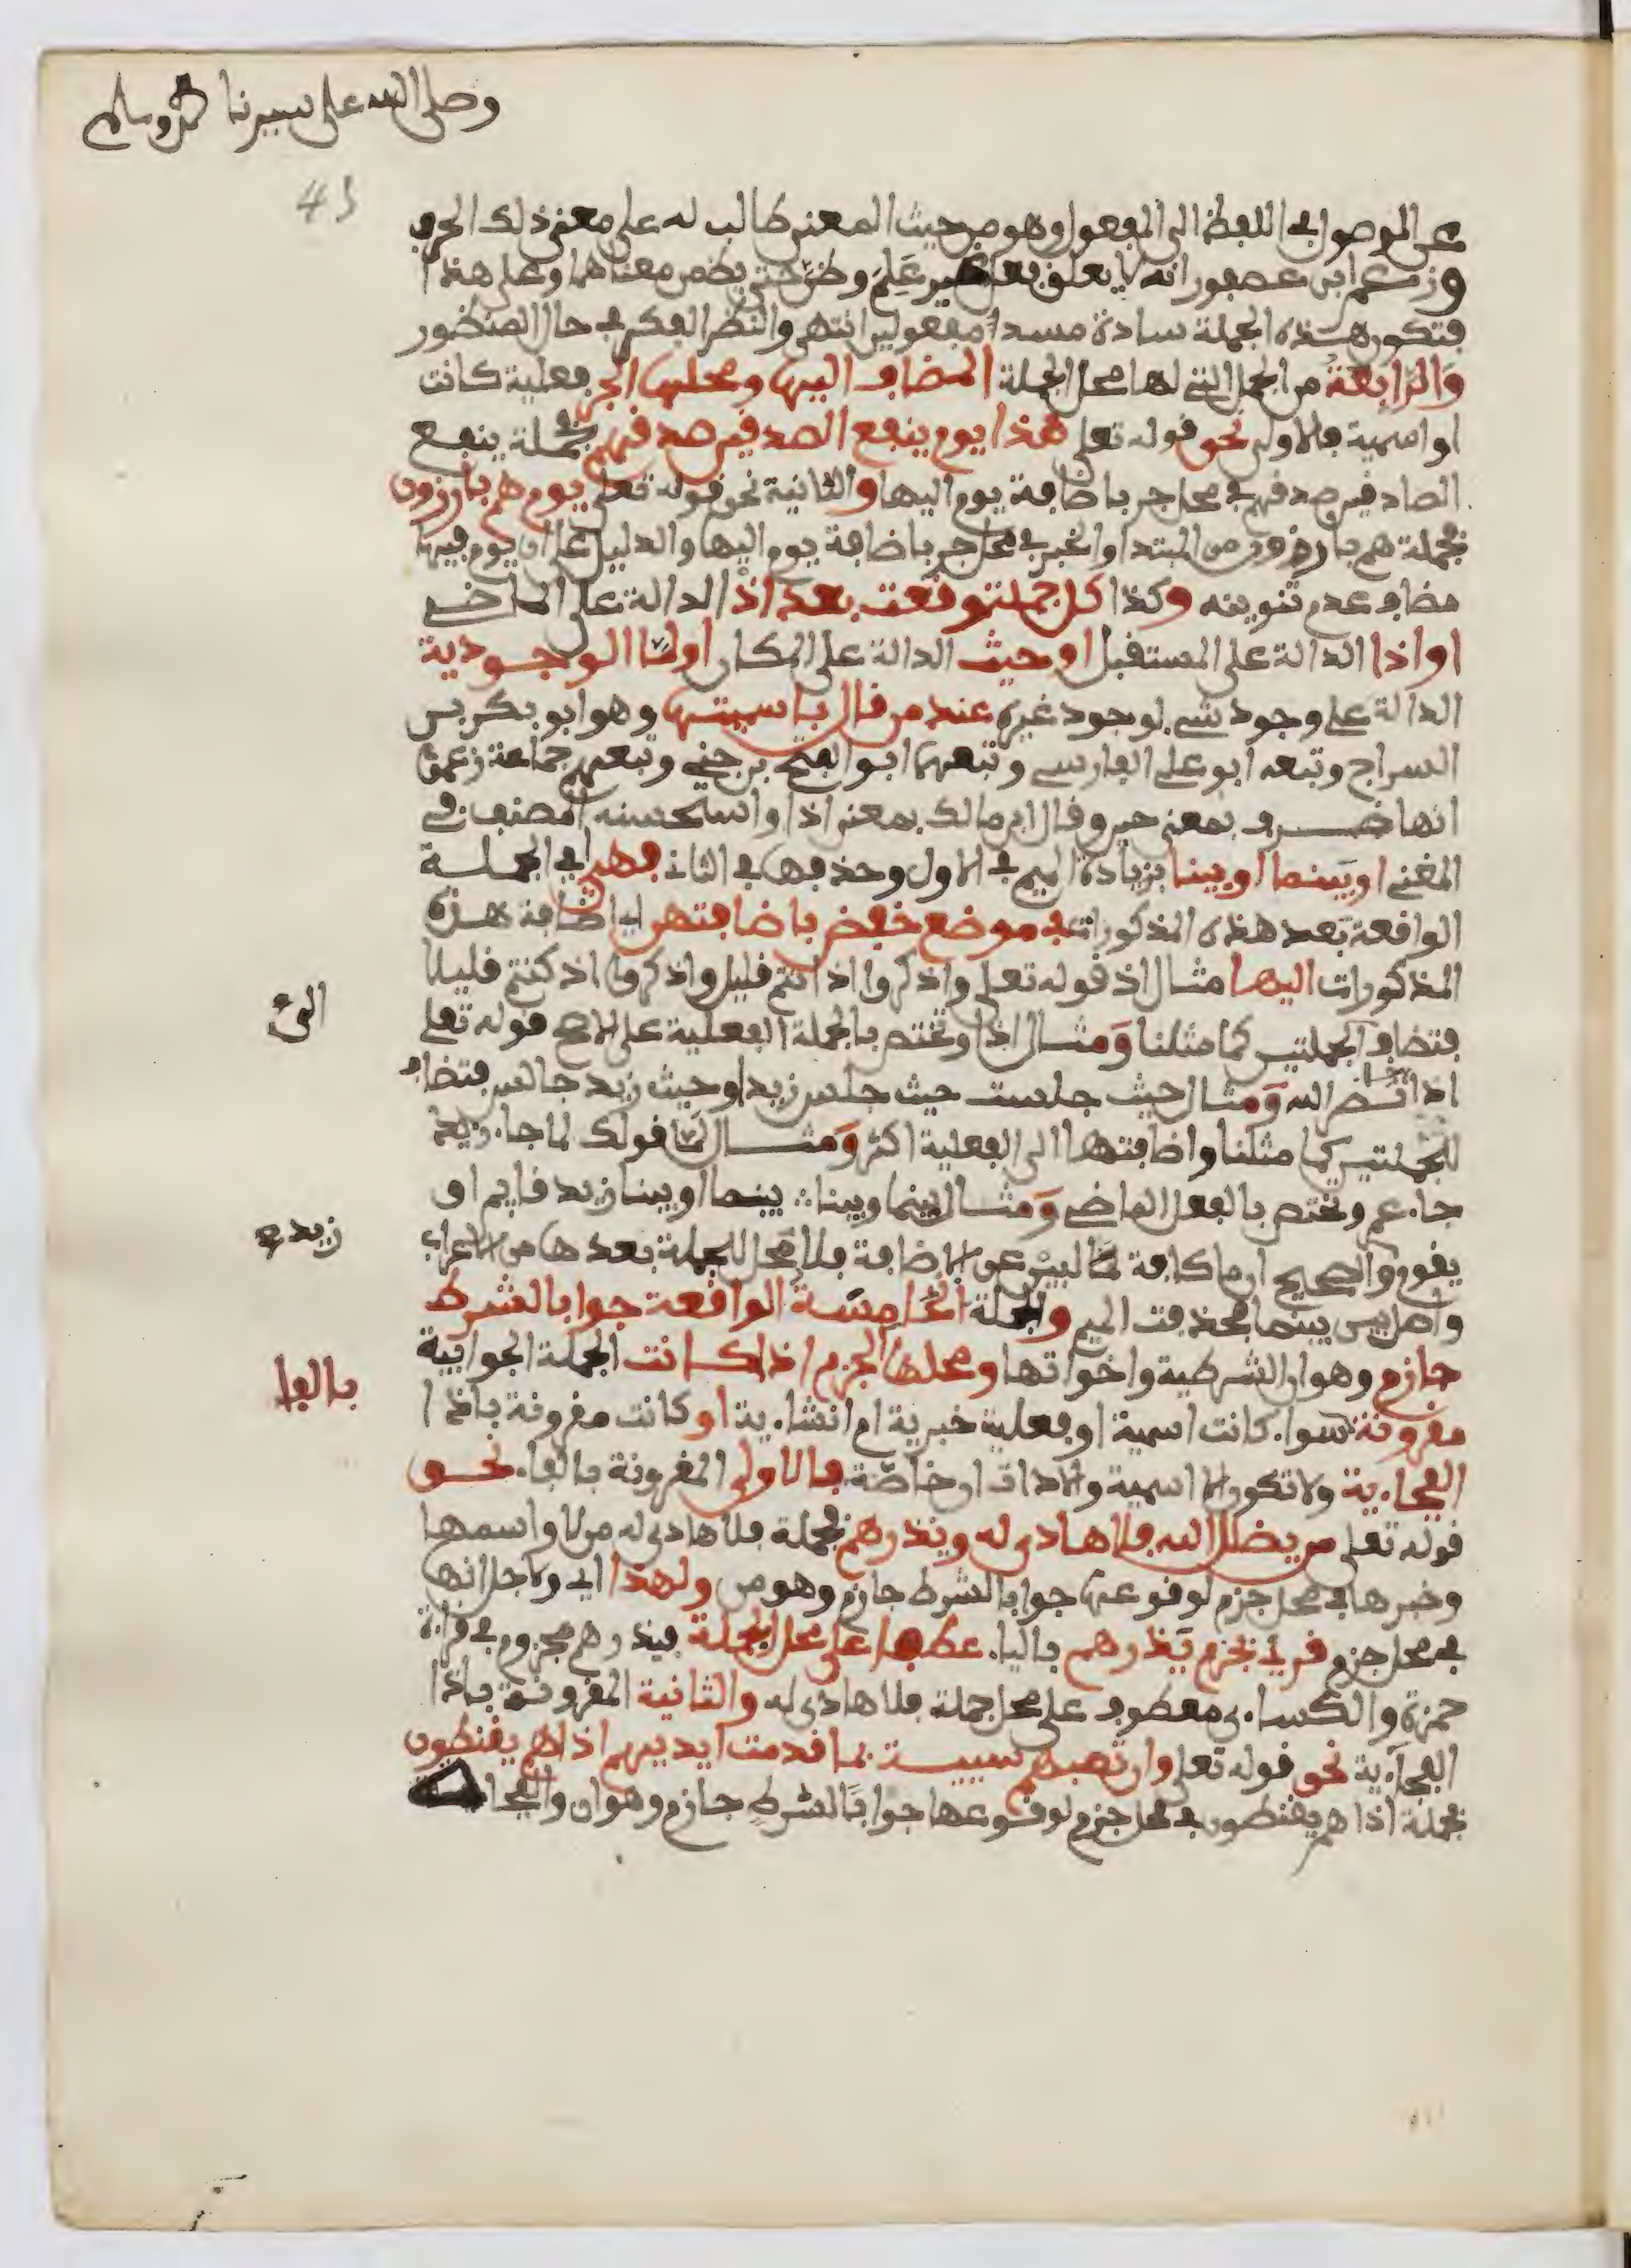 وصلى الله على سيدنا محمد وسلم
43
عن الموصول في اللفظ الى المفعول وهو من حيث المعنى طالب له على معنى ذلك الحرف
وزعم ابن عصفور انه لا يعلق فعل غير علم وظن حتى يضمن معناهما وعلى هذا
فتكون هذه الجملة سادة مسد المفعولين انتهى والنظر الفكر في حال المنظور
والرابعة من الجمل التي لها محل الجملة المضاف اليها ومحلها الجر فعلية كانت
او اسمية فالاولى نحو قوله تعلى هذا يوم ينفع الصدقين صدقهم فجملة ينفع
الصادقين صدقهم في محل جر باضافة يوم اليها والثانية نحو قوله تعلى يوم هم بارزون
فجملة هم بارزون من المبتدا والخبر في محل جر باضافة يوم اليها والدليل على ان يوم فيها
مضاف عدم تنوينه وكذا كل جملة وقعت بعد اذ الدالة على الماضي
او اذا الدالة على المستقبل او حيث الدالة على المكان او لما الوجودية
الدالة على وجود شيء لوجود غيره عند من قال باسميتها وهو ابو بكر بن
السراج وتبعه ابو علي الفارسي وتبعهما ابو الفتح بن جني وتبعهم جماعة زعموا
انها ظرف بمعنى حين وقال ابن مالك بمعنى اذ واستحسنه المصنف في
المغني او بينما او بينا بزيادة الميم في الاول وحذفها في الثاني فهي اي الجملة
الواقعة بعد هذه المذكورات في موضع خفض باضافتهن اي اضافة هذه
المذكورات اليها مثال اذ قوله تعلى واذكروا اذ انتم قليل واذكروا اذ كنتم قليلا
فتضاف الجملتين كما مثلنا ومثال اذا وتختص بالجملة الفعلية على الاصح قوله تعلى
الى
اذا جا نصر الله ومثال حيث جلست حيث جلس زيد او حيث زيد جالس فتضاف
للجملتين كما مثلنا واضافتها الى الفعلية اكثر ومثال لما قولك لما جاء زيد
جاء عمر وتختص بالفعل الماضي ومثال بينما وبينا بينما او بينا زيد قايم او
يقوم والصحيح ان ما كافة لبين عن الاضافة فلا محل للجملة بعدها من الاعراب
زيد
واصل بين بينما فحذفت الميم والجملة الخامسة الواقعة جوابا لشرط
جازم وهو ان الشرطية واخواتها ومحلها الجزم اذا كانت الجملة الجوابية
بالفا
مقرونة سواء كانت اسمية او فعلية خبرية ام انشاءية او كانت مقرونة باذا
الفجاءية ولا تكون الا اسمية والاداة ان خاصة فالاولى المقرونة بالفاء نحو
قوله تعلى من يضلل الله فلا هادي له ويذرهم فجملة فلا هادي له من لا واسمها
وخبرها في محل جزم لوقوعها جوابا لشرط جازم وهو من ولهذا اي ولاجل انها
في محل جزم قرئ بجزم يذرهم بالياء عطفا على محل الجملة فيذرهم مجزوم في قراءة
حمزة والكساءي معطوف على محل جملة فلا هادي له والثانية المقرونة باذا
الفجاءية نحو قوله تعلى وان تصبهم سيية بما قدمت ايديهم اذا هم يقنطون
فجملة اذا هم يقنطون في محل جزم لوقوعها جوابا لشرط جازم وهو ان